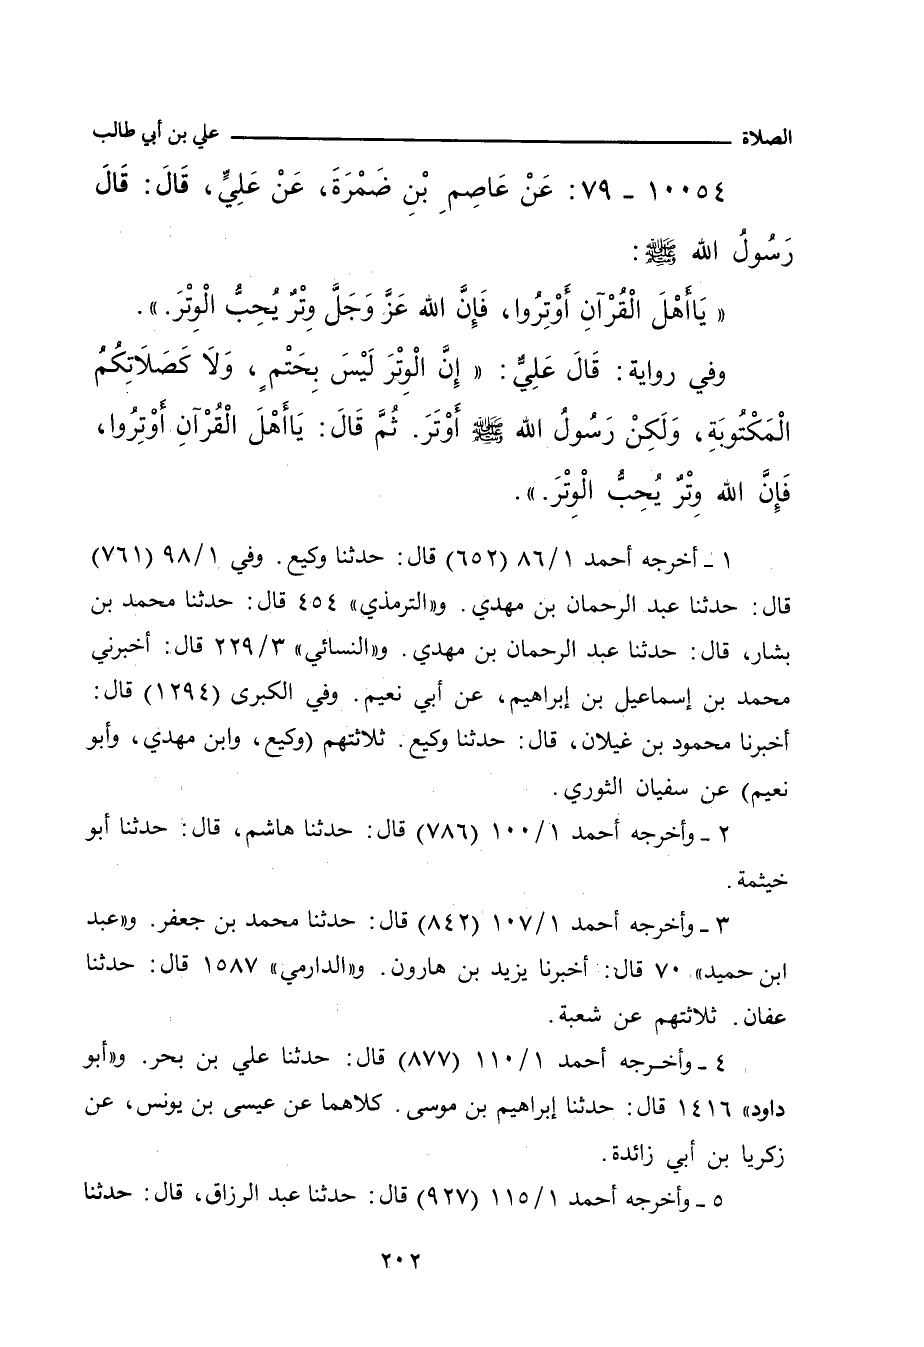 الصلاة ـــــــــــ علي بن أبي طالب
١٠٠٥٤ ـ ٧٩: عَنْ عَاصِمِ بْنِ ضَمْرَةَ، عَنْ عَلِيٍّ، قَالَ: قَالَ
رَسُولُ الله ﷺ:
« يَاأَهْلَ الْقُرْآنِ أَوْتِرُوا، فَإِنَّ الله عَزَّ وَجَلَّ وِتْرٌ يُحِبُّ الْوِتْرَ.».
وفي رواية: قَالَ عَلِيٌّ: « إِنَّ الْوِتْرَ لَيْسَ بِحَتْمٍ، وَلَا كَصَلَاتِكُمُ
الْمَكْتُوبَةِ، وَلَكِنْ رَسُولُ الله ﷺ أَوْتَرَ. ثُمَّ قَالَ: يَاأَهْلَ الْقُرْآنِ أَوْتِرُوا،
فَإِنَّ الله وِتْرٌ يُحِبُّ الْوِتْرَ.».
١ ـ أخرجه أحمد ٨٦/١ (٦٥٢) قال: حدثنا وكيع. وفي ٩٨/١ (٧٦١)
قال: حدثنا عبد الرحمان بن مهدي. و«الترمذي» ٤٥٤ قال: حدثنا محمد بن
بشار، قال: حدثنا عبد الرحمان بن مهدي. و«النسائي» ٢٢٩/٣ قال: أخبرني
محمد بن إسماعيل بن إبراهيم، عن أبي نعيم. وفي الكبرى (١٢٩٤) قال:
أخبرنا محمود بن غيلان، قال: حدثنا وكيع. ثلاثتهم (وكيع، وابن مهدي، وأبو
نعيم) عن سفيان الثوري.
٢ ـ وأخرجه أحمد ١٠٠/١ (٧٨٦) قال: حدثنا هاشم، قال: حدثنا أبو
خيثمة.
٣ ـ وأخرجه أحمد ١٠٧/١ (٨٤٢) قال: حدثنا محمد بن جعفر. و«عبد
ابن حميد» ٧٠ قال: أخبرنا يزيد بن هارون. و«الدارمي» ١٥٨٧ قال: حدثنا
عفان. ثلاثتهم عن شعبة.
٤ ـ وأخرجه أحمد ١١٠/١ (٨٧٧) قال: حدثنا علي بن بحر. و«أبو
داود» ١٤١٦ قال: حدثنا إبراهيم بن موسى. كلاهما عن عيسى بن يونس، عن
زكريا بن أبي زائدة.
٥ ـ وأخرجه أحمد ١١٥/١ (٩٢٧) قال: حدثنا عبد الرزاق، قال: حدثنا
٢٠٢